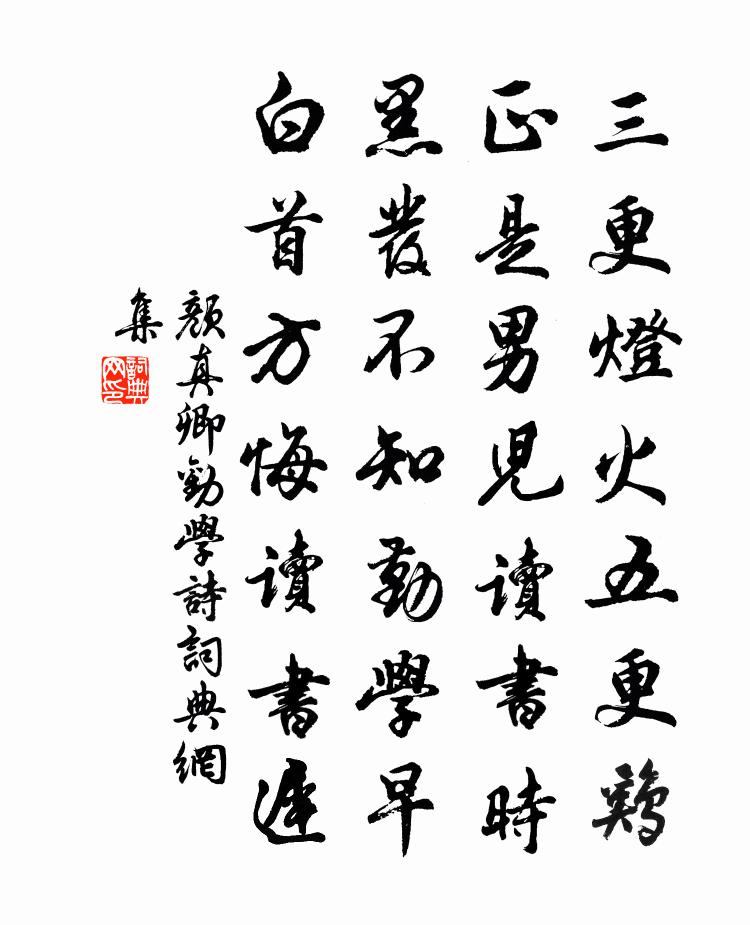 三更燈火五更鷄
正是男児讀書時
黑發不知勤學早
白首方悔讀書遲
顏真卿勸學詩詞典網
集
詞典
网印